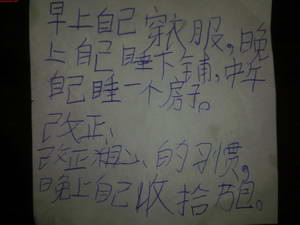 早上自己穿衣服，晚
上自己睡下铺，中午
自己睡一个房子。
改正、
改正粗心、的习惯，
晚上自己收拾书包。